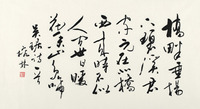 橋畔垂楊
下碧溪君
家元在北橋
西來時不似
人間世日暖
花香山鳥啼
吳琚詩一首